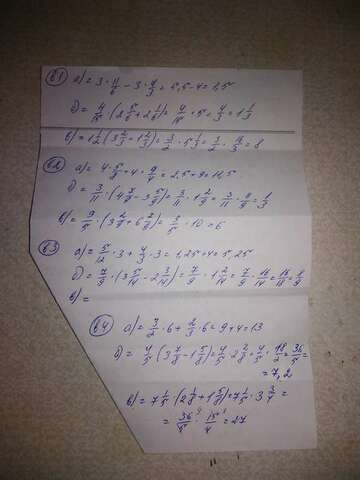 В1 а) = 3 · 11/6 − 3 · 4/3 = 5,5 − 4 = 1,5
б) = 4/15 · (2 5/6 + 2 1/6) = 4/15 · 5 = 4/3 = 1 1/3
в) = 1 1/2 (3 2/3 + 1 2/3) = 3/2 · 5 1/3 = 3/2 · 16/3 = 8
В2 а) = 4 · 5/8 + 4 · 9/4 = 2,5 + 9 = 11,5
б) = 3/11 · (4 7/9 − 3 5/9) = 3/11 · 1 2/9 = 3/11 · 11/9 = 1/3
в) = 3/5 · (3 2/9 + 6 7/9) = 3/5 · 10 = 6
В3 а) = 5/12 · 3 + 4/3 · 3 = 1,25 + 4 = 5,25
б) = 7/9 · (3 5/14 − 2 3/14) = 7/9 · 1 2/14 = 7/9 · 16/14 = 16/18 = 8/9
в) =
В4 а) = 3/2 · 6 + 2/3 · 6 = 9 + 4 = 13
б) = 4/5 (3 7/8 − 1 5/8) = 4/5 · 2 2/8 = 4/5 · 18/2 = 36/5 =
= 7,2
в) = 7 1/5 · (2 1/8 + 1 5/8) = 7 1/5 · 3 3/4 =
= 36/5 · 15/4 = 27